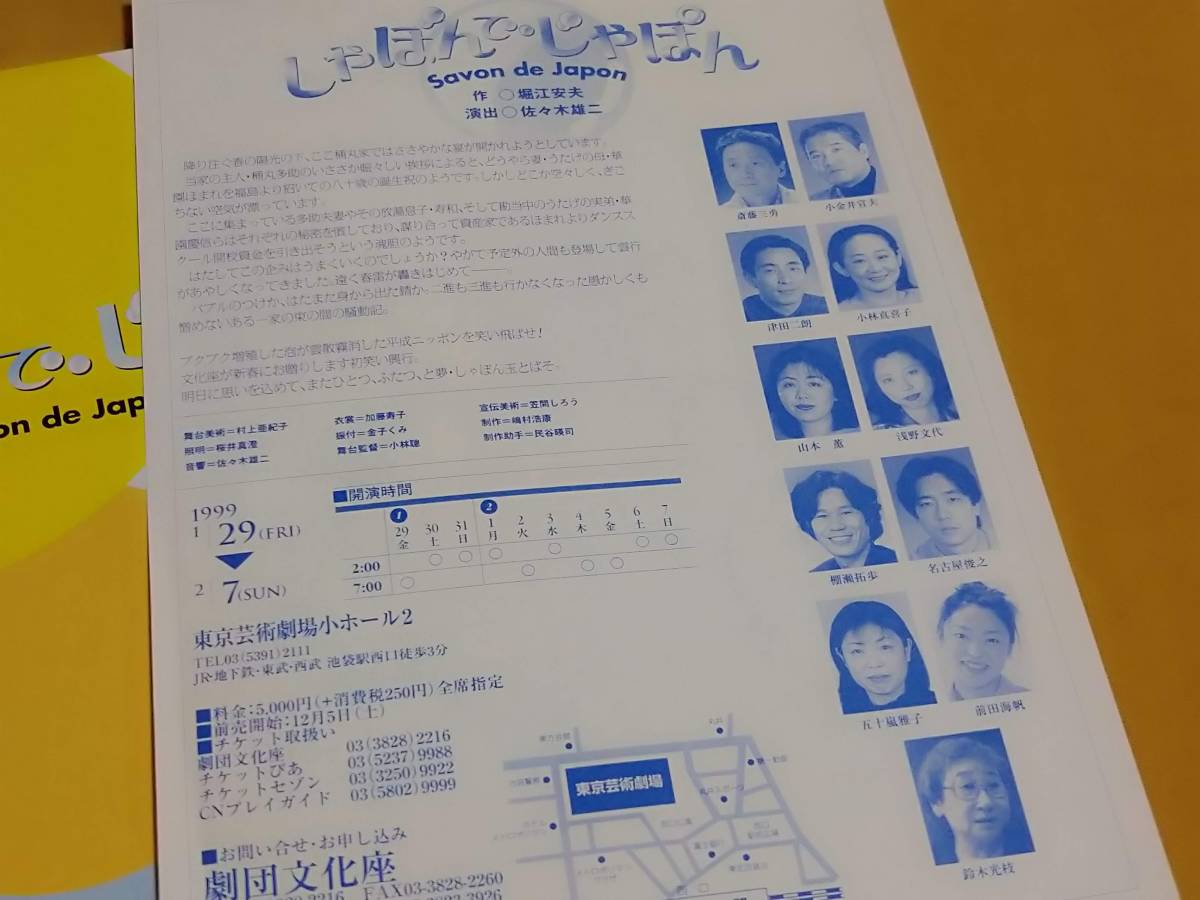 しゃぼんで・じゃぽん
Savon de Japon
作 ○ 堀江安夫
演出○ 佐々木雄二
降り注ぐ春の陽光の下、ここ桶丸家ではささやかな宴が開かれようとしています。
当家の主人・桶丸多助のいささか賑々しい挨拶によると、どうやら妻・うたげの母・華
園ほまれを福島より招いての八十歳の誕生祝のようです。しかしどこか空々しく、ぎこ
ちない空気が漂っています。
ここに集まっている多助夫妻やその放蕩息子・寿和、そして勘当中のうたげの実弟・華
園慶信らはそれぞれの秘密を質しており、謀り合って資産家であるほまれよりダンスス
クール開校資金を引き出そうという魂胆のようです。
はたしてこの企みはうまくいくのでしょうか?やがて予定外の人間も登場して雲行
があやしくなってきました。遠く春雷が轟きはじめて———。
バブルのつけか、はたまた身から出た錆か。二進も三進も行かなくなった愚かしくも
憎めないある一家の束の間の騒動記。
ブクブク増殖した泡が雲散霧消した平成ニッポンを笑い飛ばせ!
文化座が新春にお贈りします初笑い興行。
明日に思いを込めて、またひとつ、ふたつ、と夢・しゃぼん玉とばそ。
舞台美術=村上亜紀子
照明=桜井真澄
音響=佐々木雄二
衣裳=加藤寿子
振付=金子くみ
舞台監督=小林聰
宣伝美術=笠間しろう
制作=嶋村浩康
制作助手=民谷暎司
1999
1 29(FRI)
2 7(SUN)
■開演時間
1 2
29 30 31 1 2 3 4 5 6 7
金 土 日 月 火 水 木 金 土 日
2:00 ○ ○ ○ ○ ○ ○
7:00 ○ ○ ○ ○
東京芸術劇場小ホール2
TEL03(5391)2111
JR・地下鉄・東武・西武 池袋駅西口徒歩3分
■料金:5,000円(+消費税250円)全席指定
■前売開始:12月5日(土)
■チケット取扱い
劇団文化座 03(3828)2216
チケットぴあ 03(5237)9988
チケットセゾン 03(3250)9922
CNプレイガイド 03(5802)9999
■お問い合せ・お申し込み
劇団文化座
FAX03-3828-2260
東京芸術劇場
斎藤三勇
小金井宣夫
津田二朗
小林真喜子
山本 薫
浅野文代
棚瀬拓歩
名古屋俊之
五十嵐雅子
前田海帆
鈴木光枝
で・じ
on de Jap